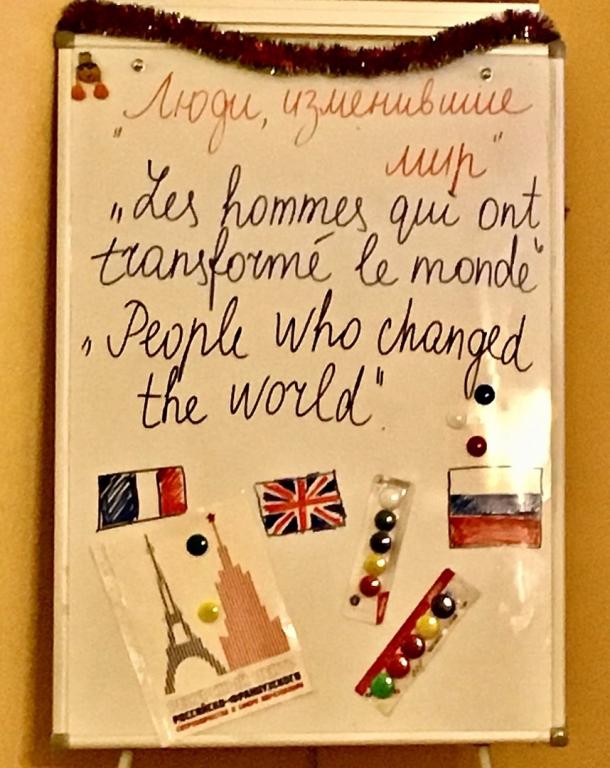 "Люди, изменившие
мир"
„Les hommes qui ont
transformé le monde"
„People who changed
the world"
РОССИЙСКО-ФРАНЦУЗСКОГО